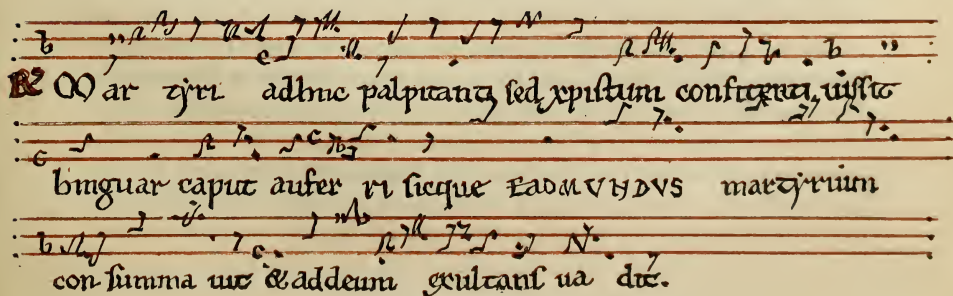 ℟ Mar tyri adhuc palpitanti, sed xpistum confitenti, iussit
hinguar caput aufer ri sicque EADMUNDVS martyrium
con summa uit & ad deum exultans ua dit.